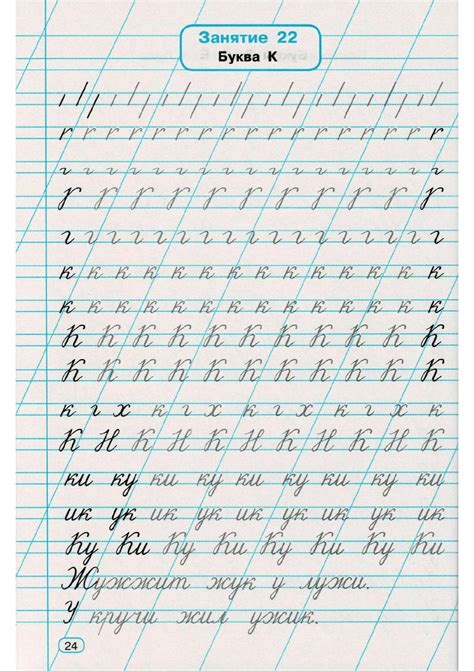 Занятие 22
Буква К
г г г г г г г г г г г г г г г г г
г г г г г г г г г г г г г г г г г
к к к к к к к к к к к к к к
к к к к к к к к к к к к к к
К К К К К К К К К К К
К К К К К К К К К К К
к г х к г х к г х к г х к
К Н К Н К Н К Н К Н К
ки ку ки ку ки ку ки ку ки
ик ук ик ук ик ук ик ук ик
Ку Ки Ку Ки Ку Ки Ку Ки
Жужжит жук у лужи.
У кручи жил ужик.
24